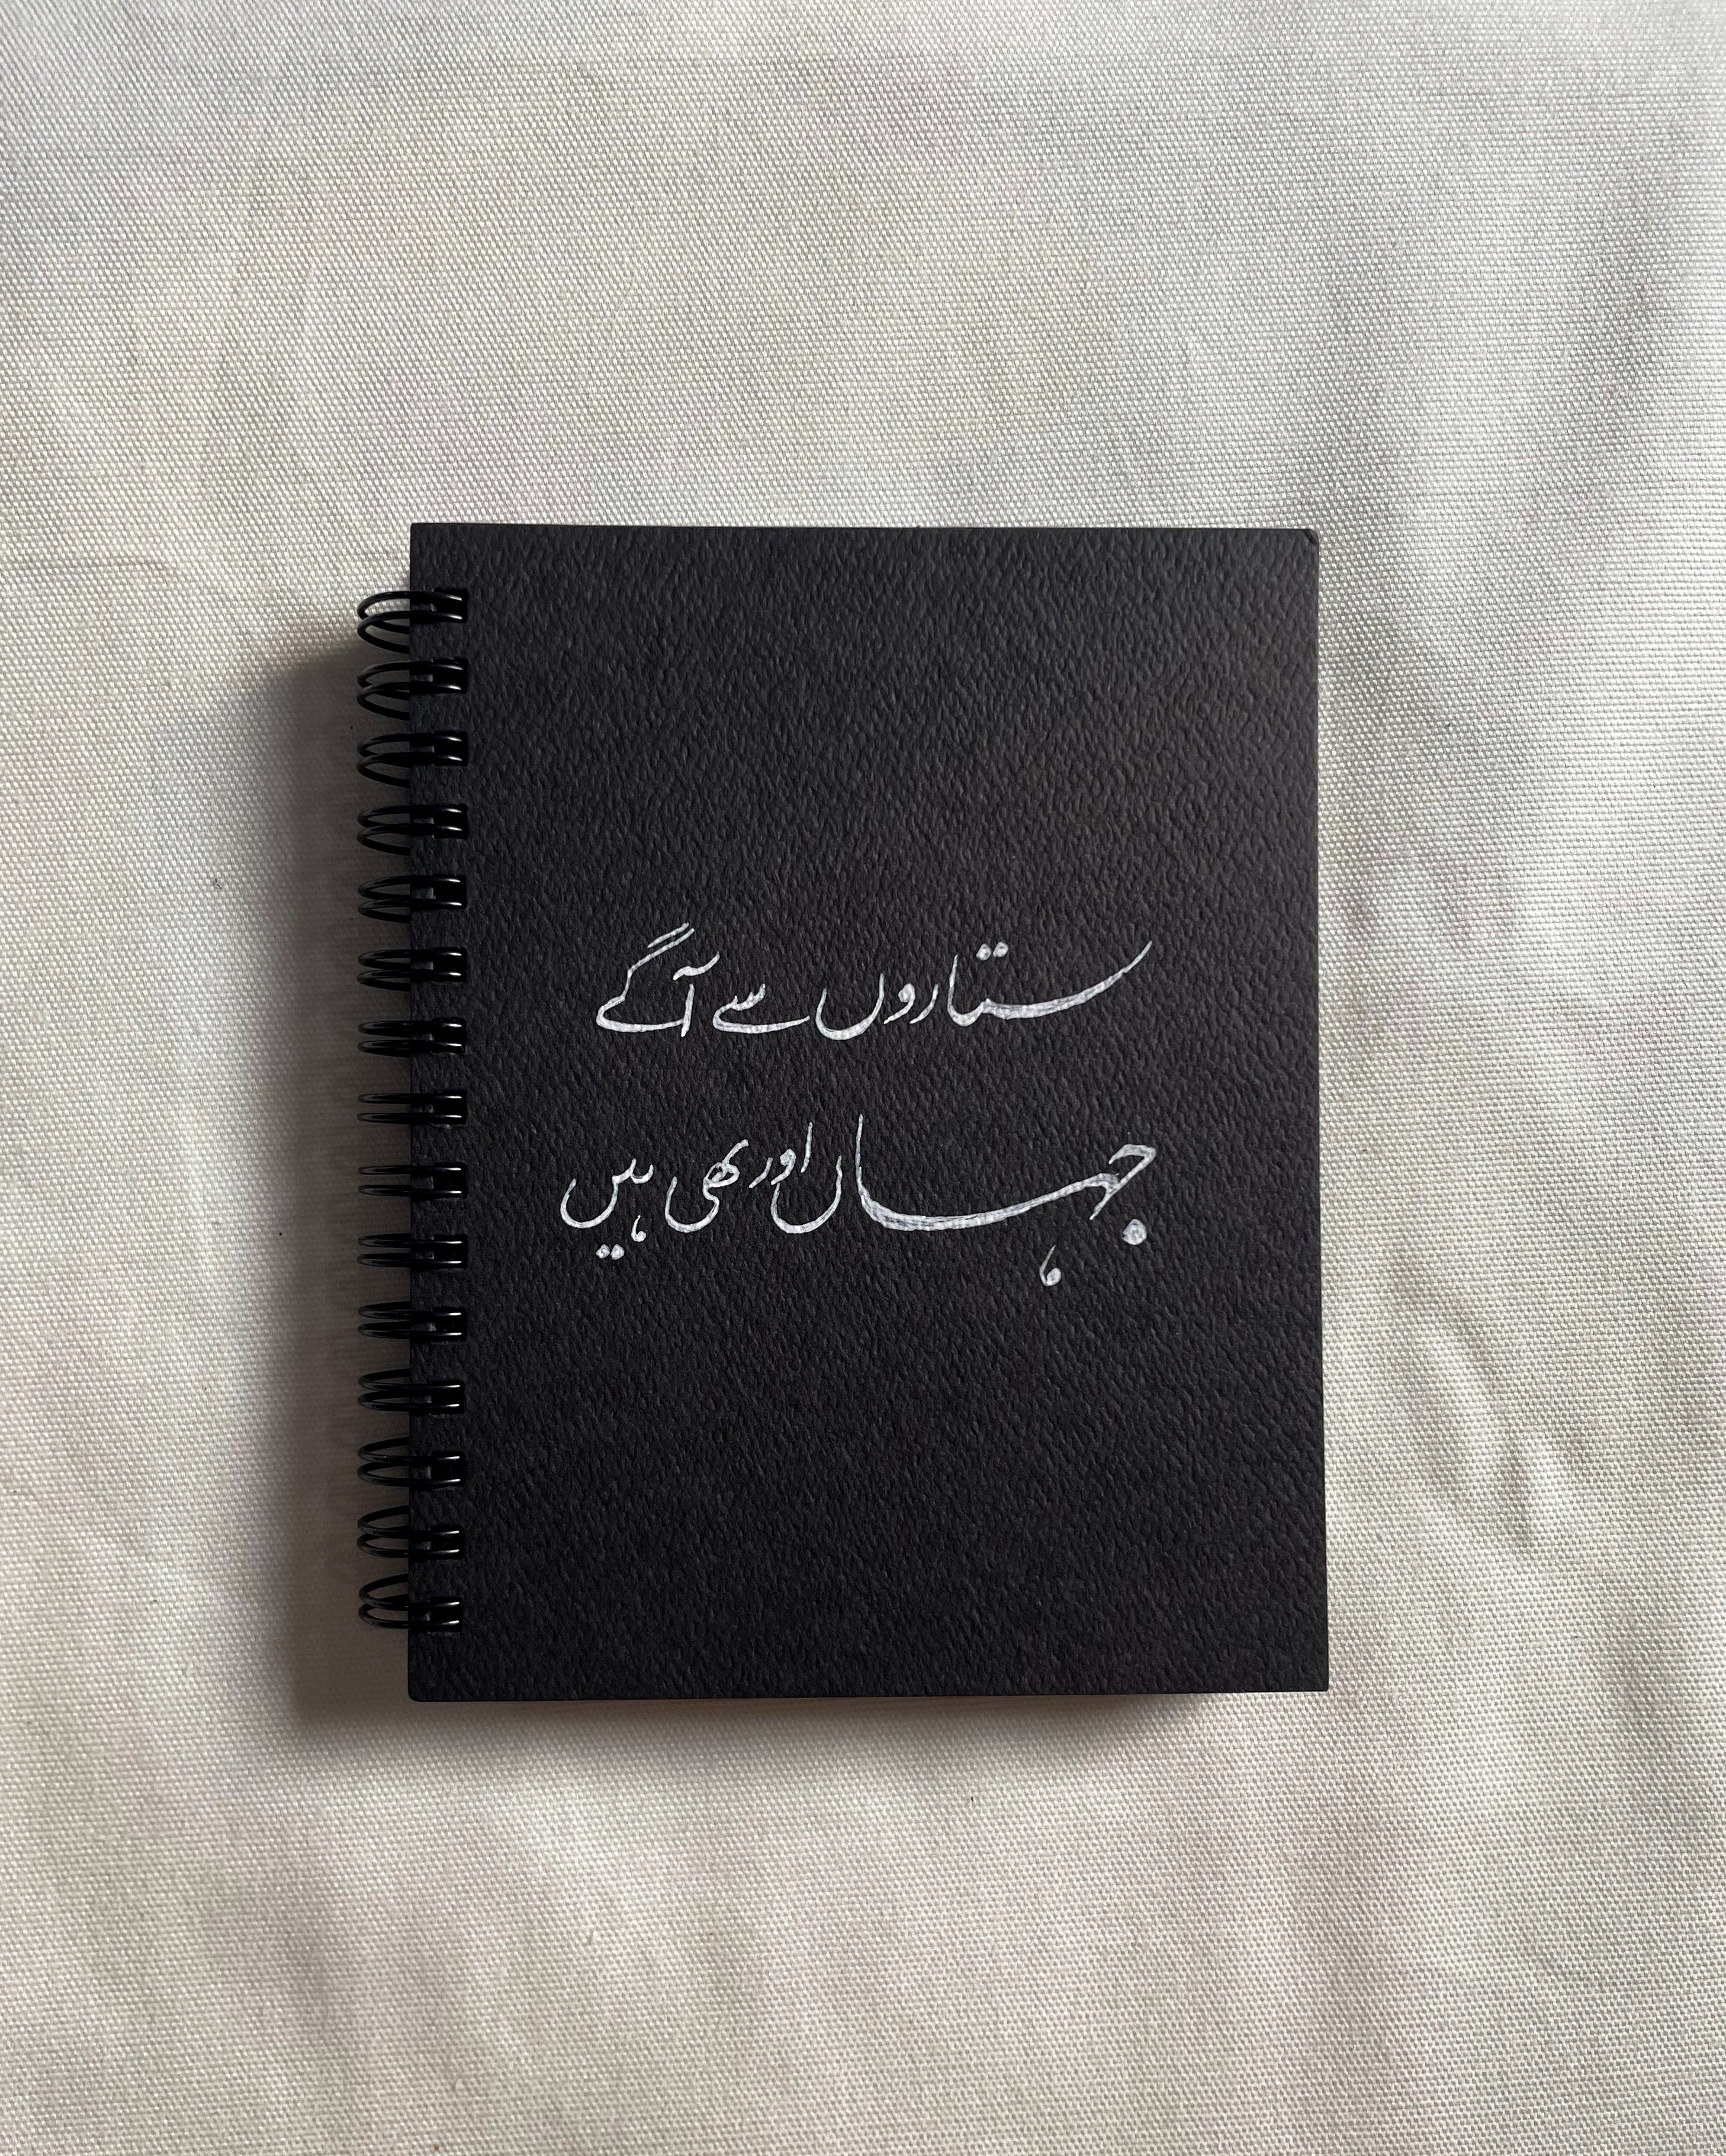 ستاروں سے آگے
جہاں اور بھی ہیں